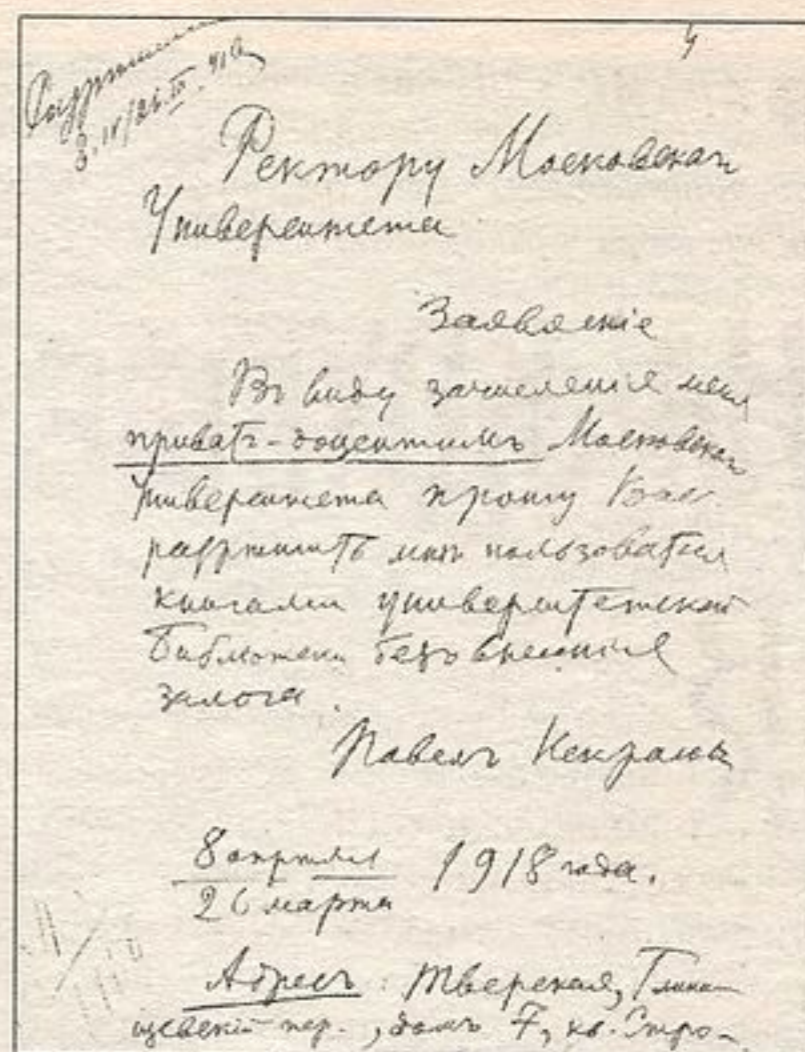 4
Ректору Московскаго
Университета
Заявленіе
Въ виду зачисленія меня
приватъ-доцентомъ Московскаго
Университета прошу Вас
разрѣшить мнѣ пользоваться
книгами университетской
библіотеки безъ внесенія
залога.
Павелъ Некрасовъ
8 апрѣля
26 марта
1918 года.
Адресъ: Тверская, Глини-
щевскій пер., домъ 7, кв. Стро-